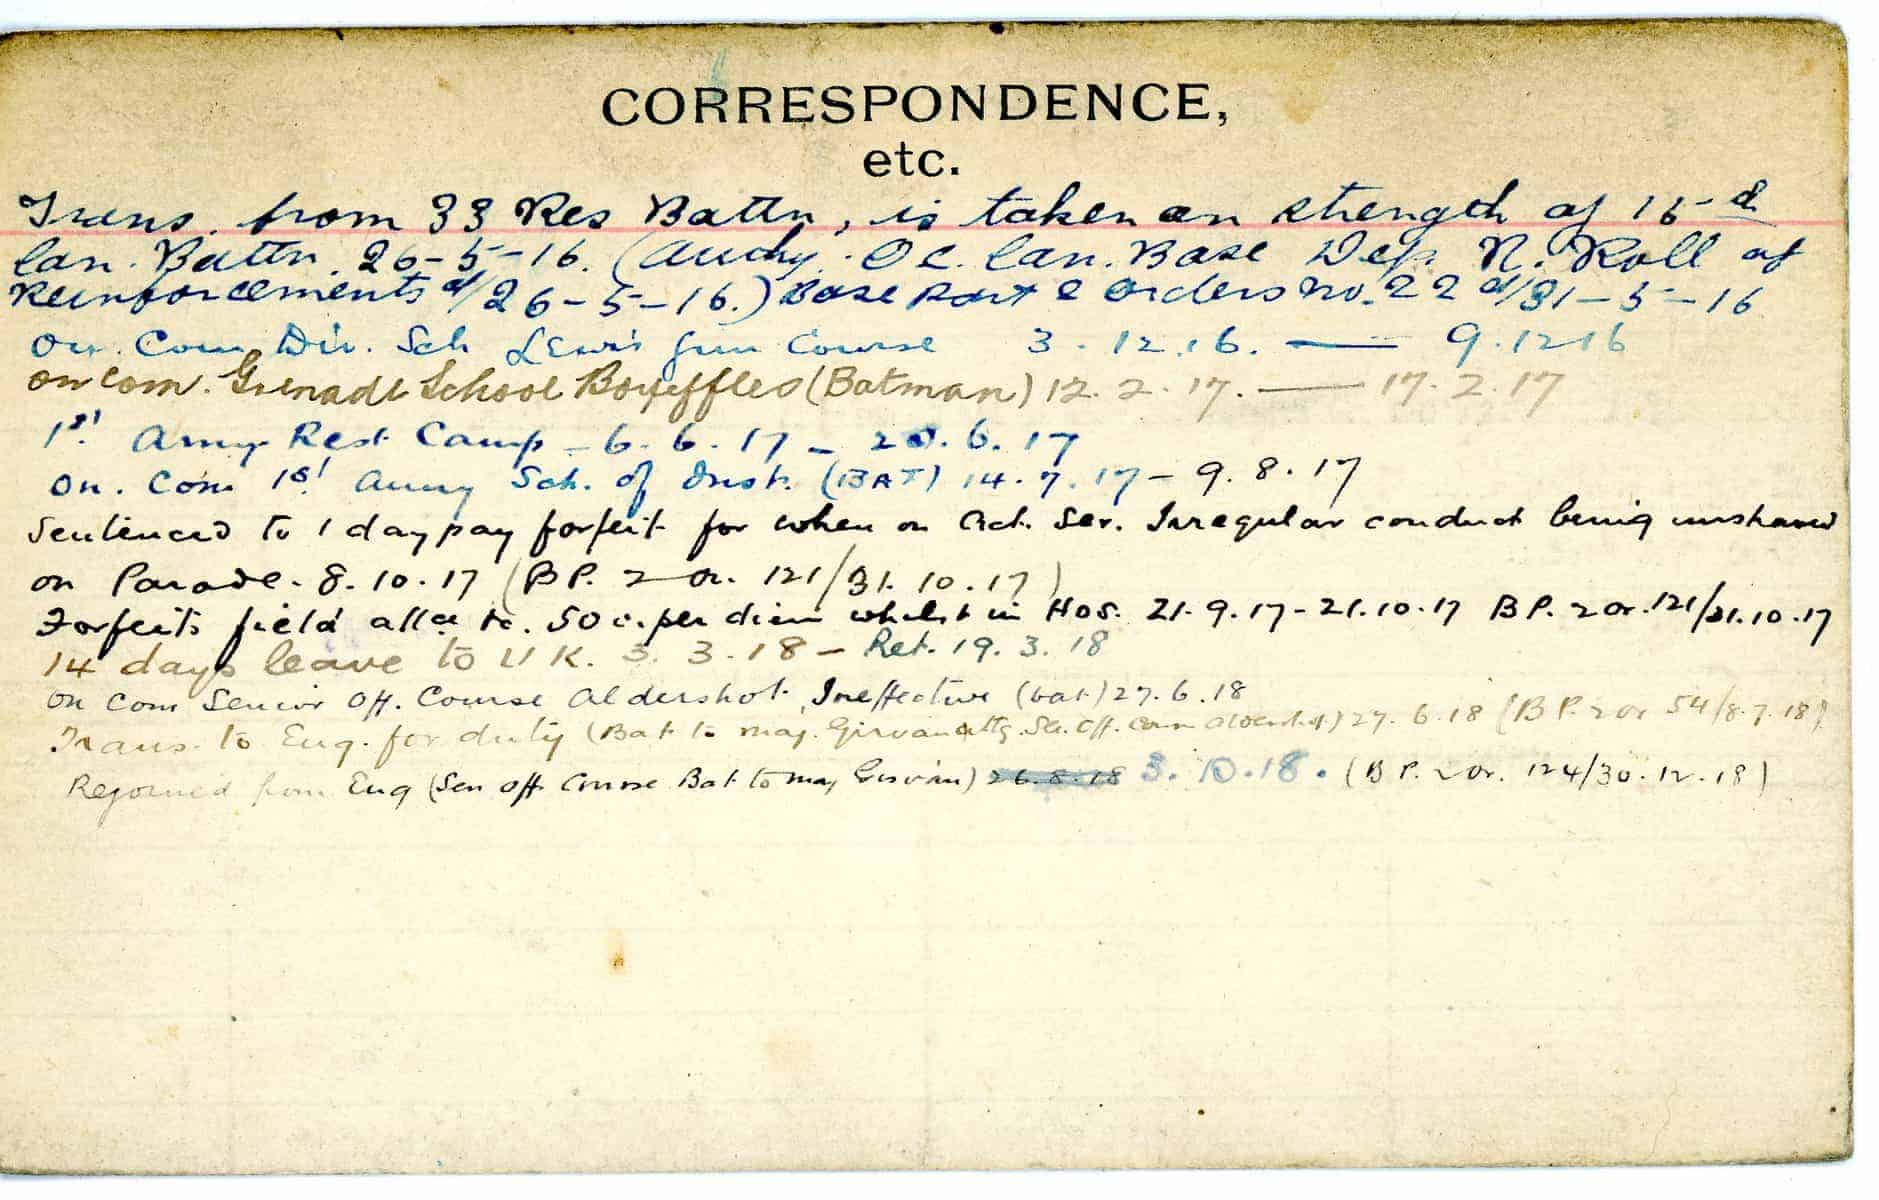 CORRESPONDENCE,
etc.
Trans. from 33 Res Battn, is taken on strength of 15th
Can. Battn. 26-5-16. (Authy. OC. Can. Base Dep. N. Roll of
Reinforcements d/26-5-16.) Base Part 2 Orders No. 22 d/31-5-16
On. Com Div. Sch Lewis Gun Course 3.12.16. — 9.12 16
on Com. Grenade School (Batman) 12.2.17. — 17.2.17
1st Army Rest Camp - 6.6.17 - 20.6.17
On. Com 1st Army Sch. of Inst. (BAT) 14.7.17 - 9.8.17
Sentenced to 1 day pay forfeit for when on Act. Ser. Irregular conduct being unshaved
on Parade. 8.10.17 (B P. 2 or. 121/31.10.17)
Forfeits field allce &c. 50 c. per diem whilst in Hos. 21.9.17-21.10.17 B P. 2 or. 121/31.10.17
14 days leave to U K. 3.3.18 - Ret. 19.3.18
On Com Senior Off. Course Aldershot, Ineffective (bat) 27.6.18
Trans. to Eng. for duty (Bat to maj. Girvan attg. Sr. Off. Aldershot) 27.6.18 (B P. 2 or 54/8.7.18)
Rejoined from Eng (Sen Off Course Bat to maj Girvan) 26.8.18 3.10.18. (B P. 2 or. 124/30.12.18)